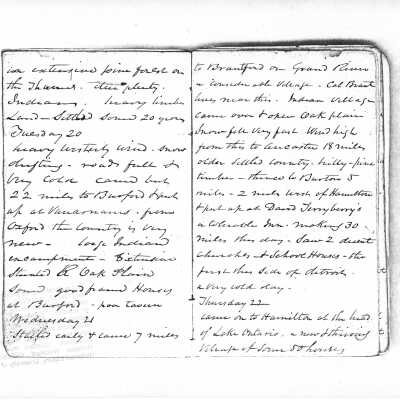 an extensive pine forest on
the Thames - deer plenty.
Indians. heavy timber
Land - Settled some 20 years
Tuesday 20
heavy Westerly wind. Snow
drifting - roads full &
very Cold came but
22 miles to Burford & put
up at from
Oxford the Country is very
new - large Indian
encampment - Extensive
Oak Plain
Some good frame Houses
at Burford - poor tavern
Wednesday 21
Started early & came 7 miles
to Brantford on Grand River
a Considerable Village - Col Brant
lives near this. Indian Village
came over & open Oak plain
Snow fell very fast - Wind high
from this to Ancaster 18 miles
older settled Country - hilly - pine
timber - thence to Barton 5
miles - 2 miles West of Hamilton
& put up at David Terryberry's
a tolerable Inn - making 30
miles this day - Saw 2 decent
Churches & School House - the
first this side of detroit
a very cold day -
Thursday 22
came on to Hamilton at the head
of Lake Ontario. a new & thriving
Village of some 50 houses